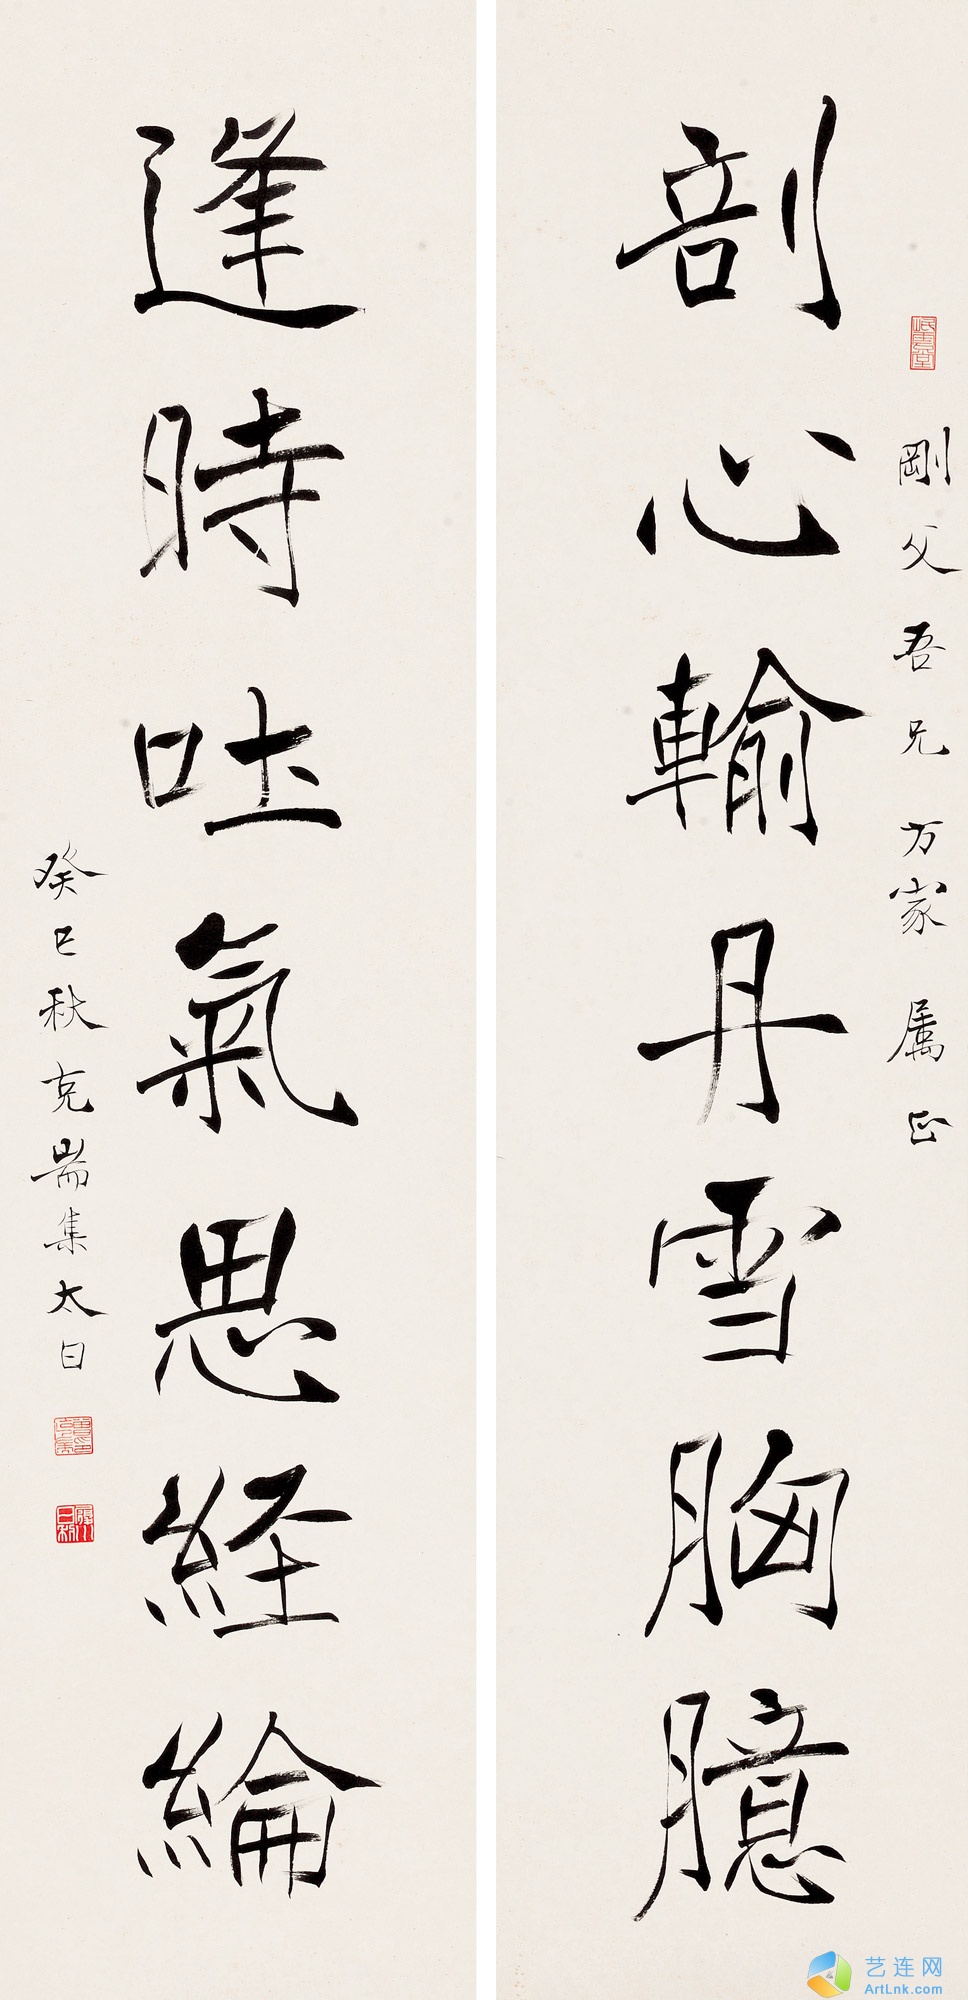 剛父吾兄方家属正
剖心輸丹雪胸臆
逢時吐氣思経綸
癸巳秋克耑集太白
艺连网
ArtLnk.com